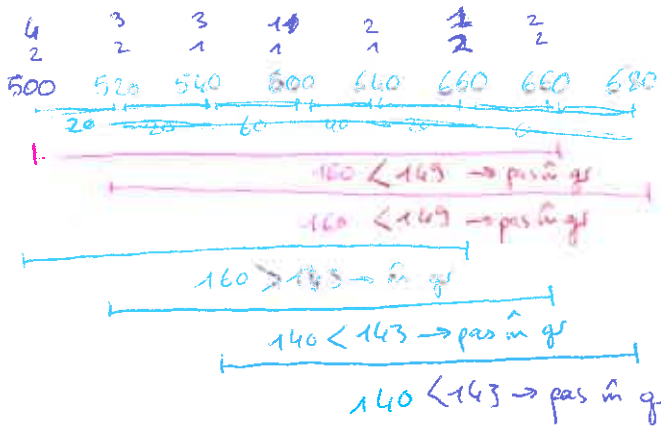 4 3 3 1 2 1 2
2 2 1 1 1 2 2
500 520 540 600 640 660 660 680
20 20 60 40 20 0
1.
160 < 149 → pas în gr
160 < 149 → pas în gr
160 > 143 → în gr
140 < 143 → pas în gr
140 < 143 → pas în g